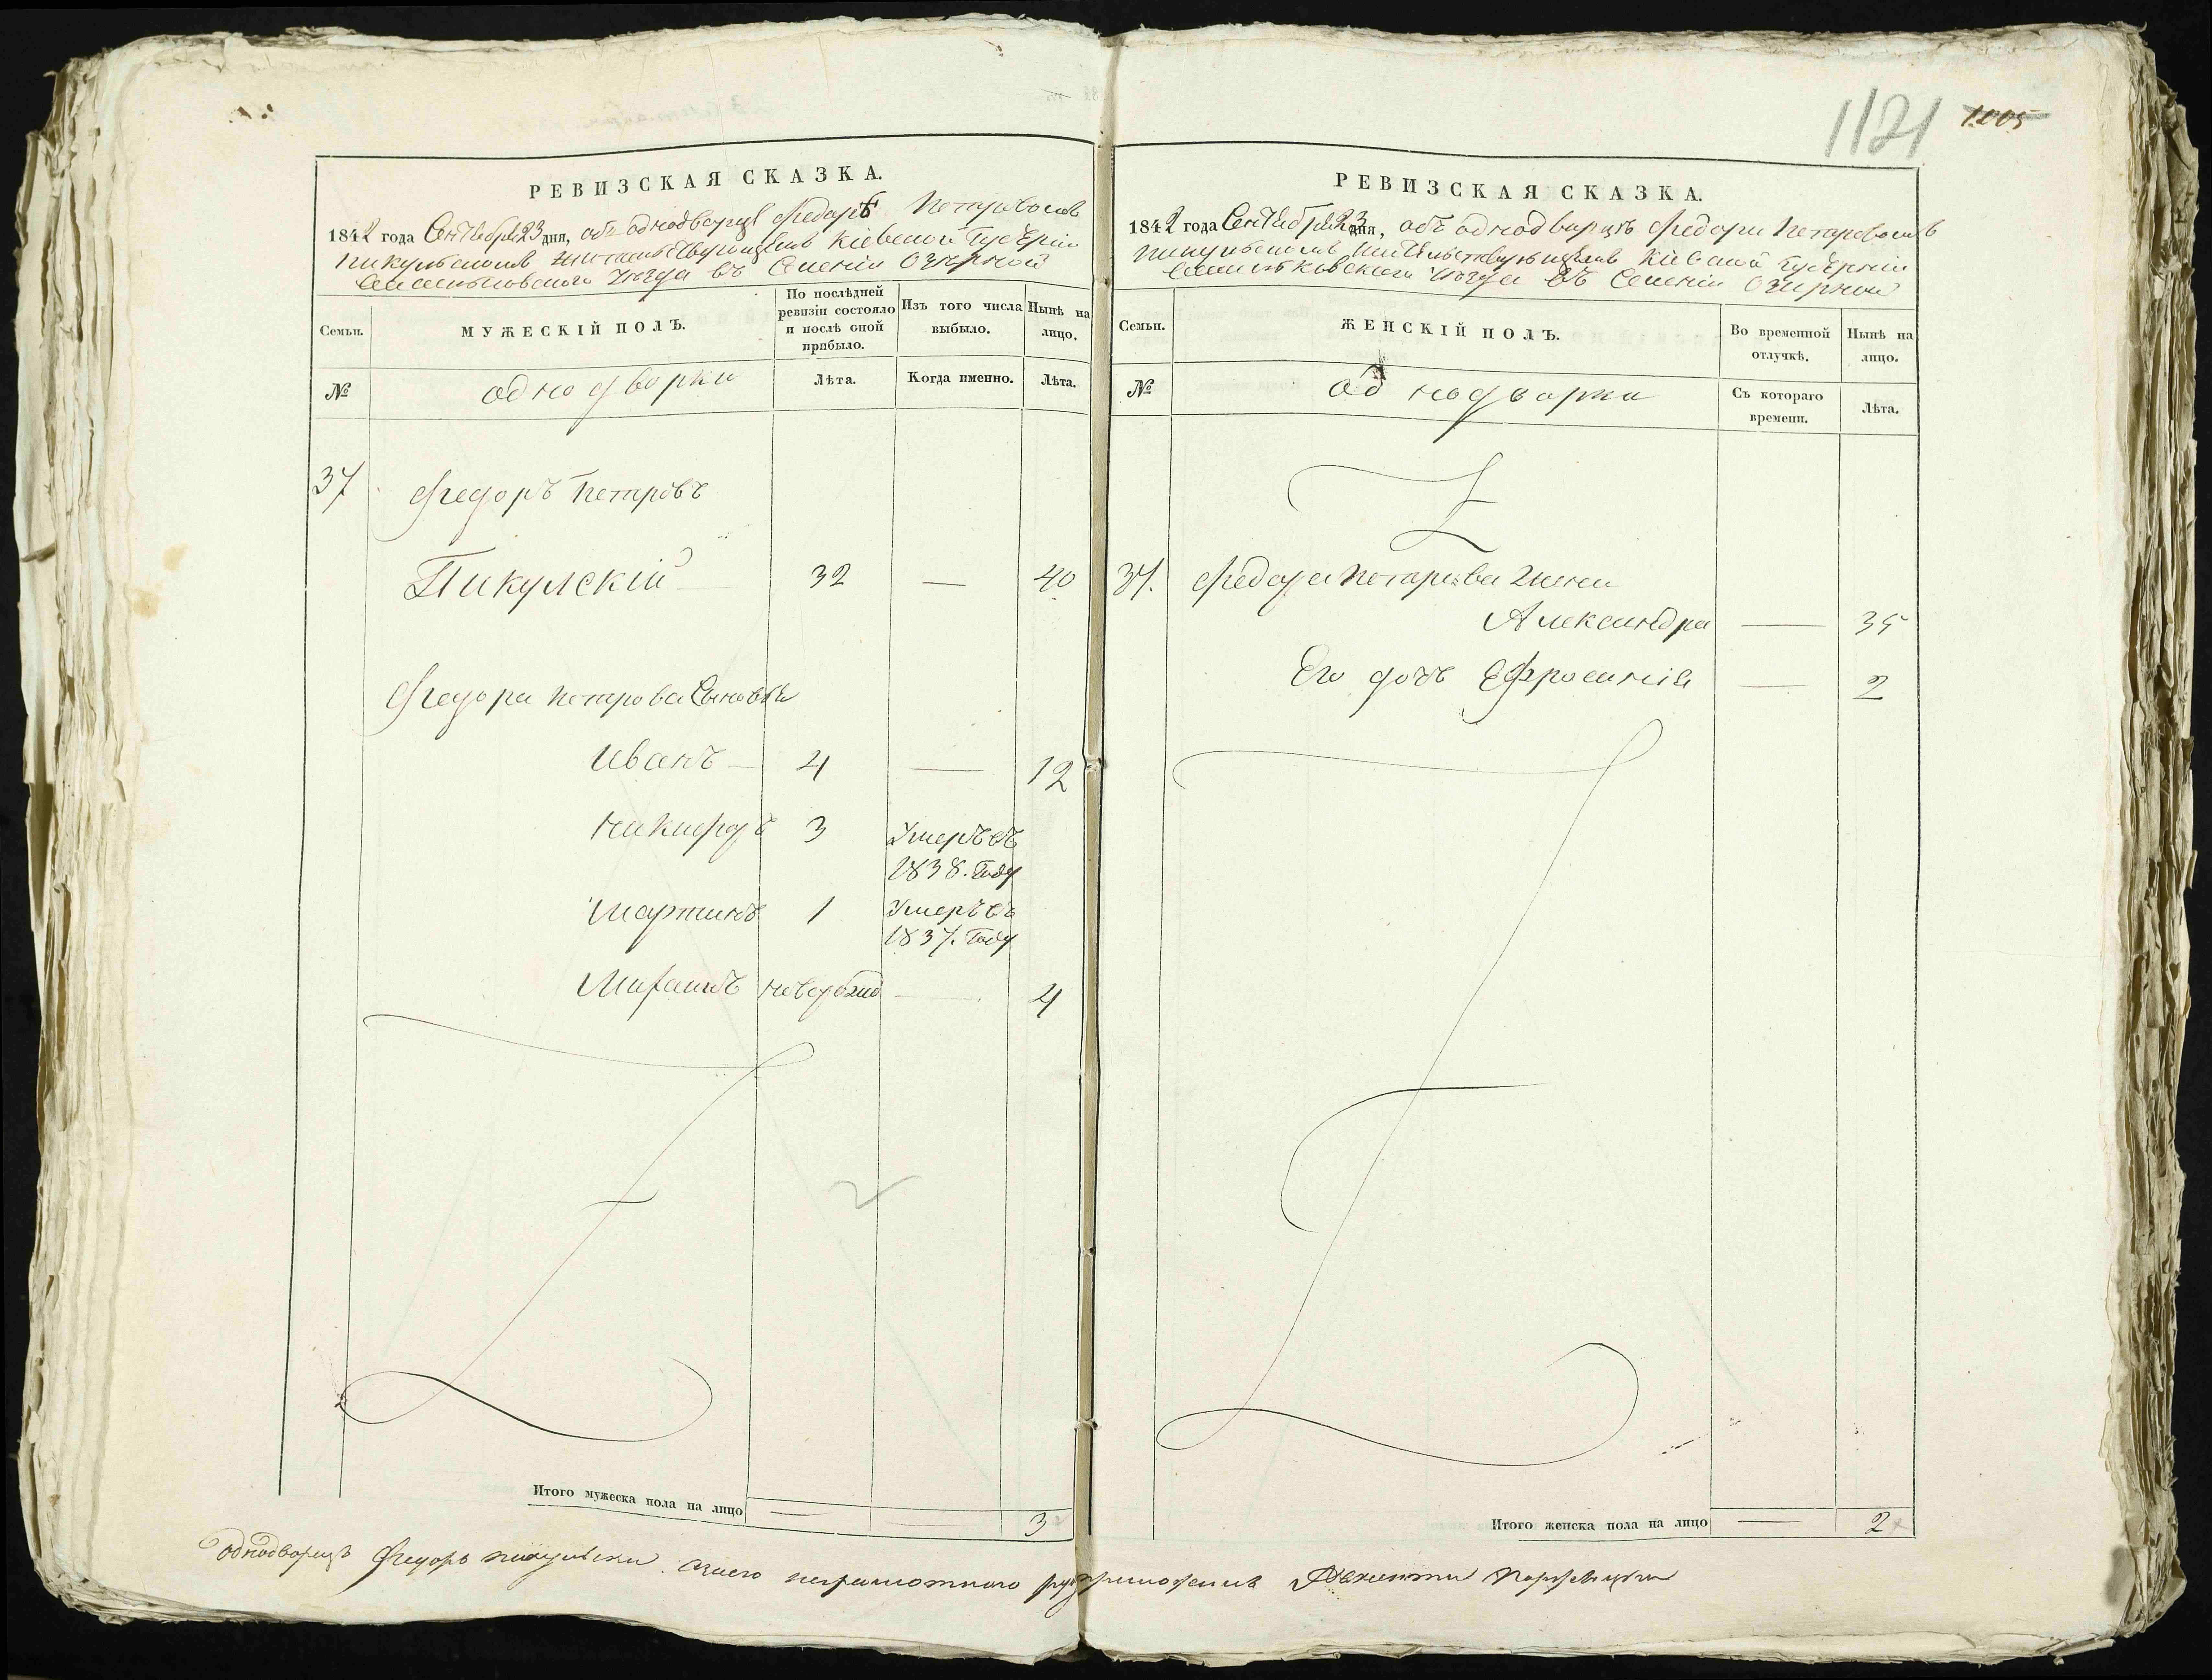 1121 1205
РЕВИЗСКАЯ СКАЗКА.
1842 года Сентября 23 дня, объ однодворцѣ Федорѣ Петровомъ
Пикульскомъ жительствующемъ Кіевской Губерніи
Васильковского уѣзда въ Селеніи Озѣрной
Семьи.
МУЖЕСКІЙ ПОЛЪ.
По послѣдней ревизіи состояло и послѣ оной прибыло.
Изъ того числа выбыло.
Нынѣ на лицо.
№
однодворки
Лѣта.
Когда именно.
Лѣта.
37 Федоръ Петровъ
Пикулскій 32 — 40
Федора Петрова Сыновья
Иванъ 4 — 12
Никифоръ 3 Умеръ въ
1838. Году
Мартинъ 1 Умеръ въ
1837. Году
новорожд — 4
Итого мужеска пола на лицо — — 3
РЕВИЗСКАЯ СКАЗКА.
1842 года Сентября 23 дня, объ однодворцѣ Федори Петровомъ
Пикульскомъ жительствующемъ Кіевской Губерніи
Васильковского уѣзда въ Селеніи Озирной
Семьи.
ЖЕНСКІЙ ПОЛЪ.
Во временной отлучкѣ.
Нынѣ на лицо.
№
однодворки
Съ котораго времени.
Лѣта.
37. Федора Петрова жена
Александра — 35
Его дочь Ефросинія — 2
Итого женска пола на лицо — 2
Однодворецъ Федоръ Пикульски азнего неграмотного